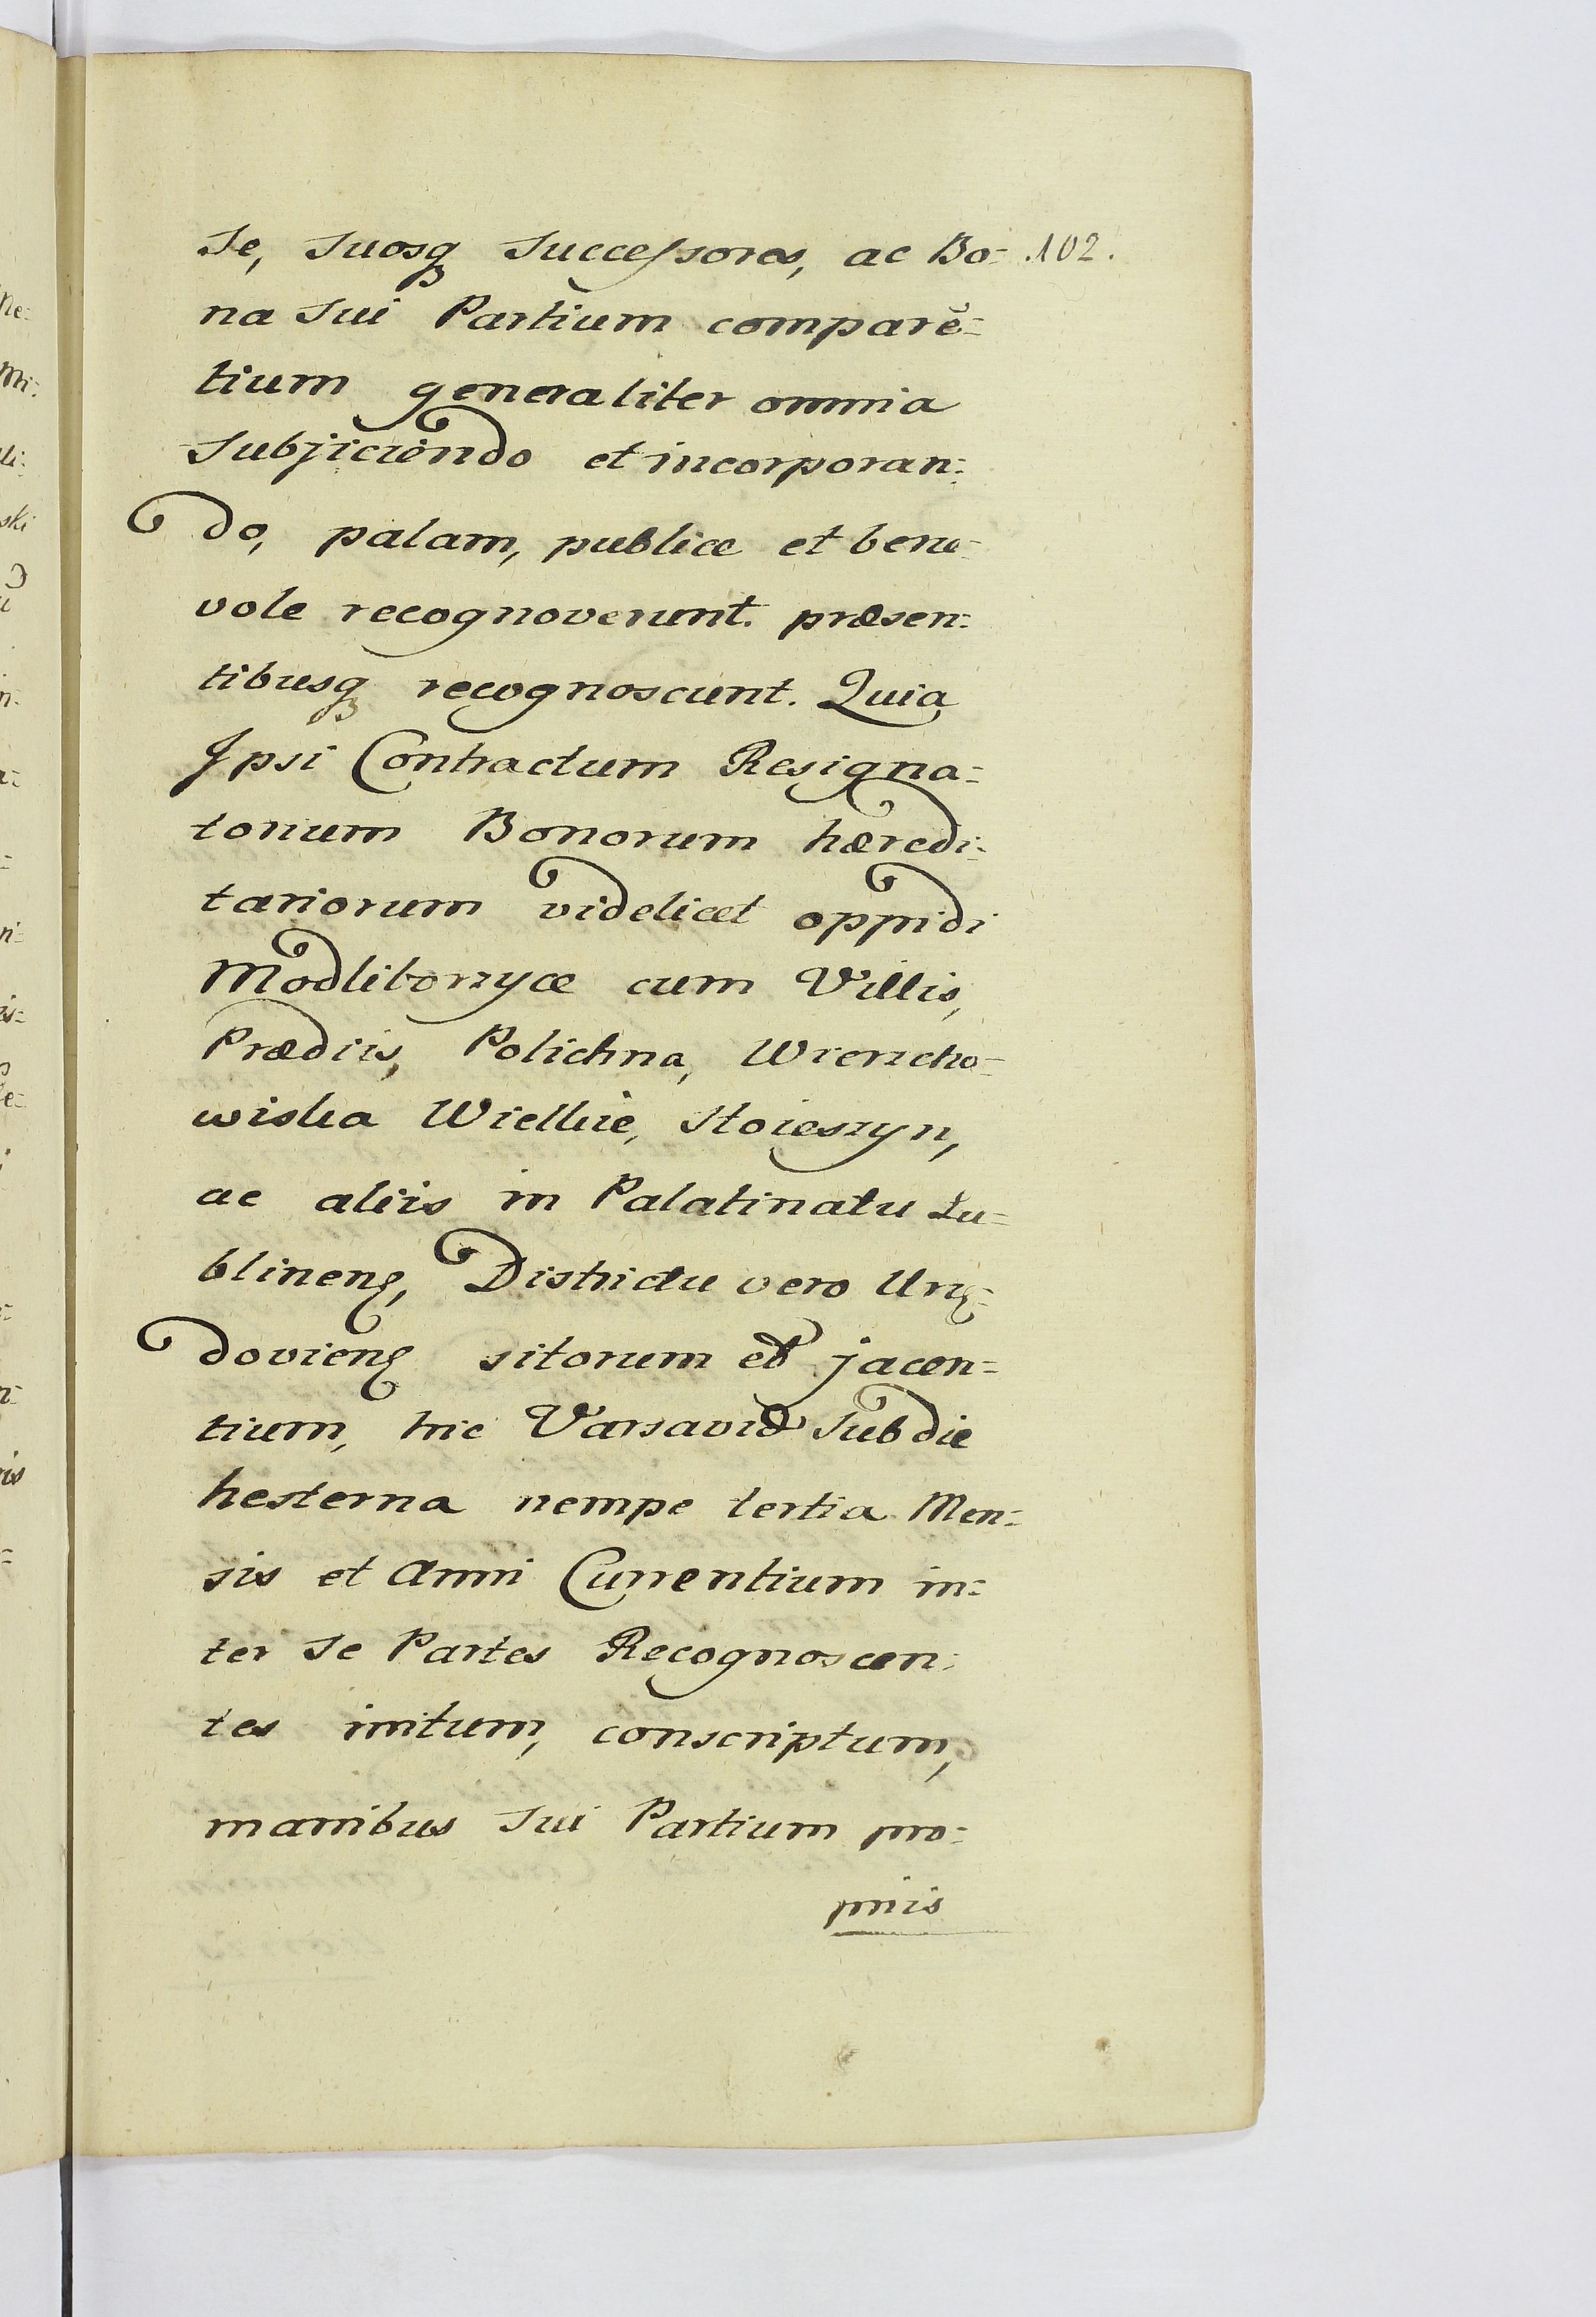 Se, Suosq Successores, ac Bo= .102.
na Sui Partium comparē=
tium generaliter omnia
Subjiciendo et incorporan=
do, palam, publice et bene=
vole recognoverunt. præsen=
tibusq recognoscunt. Quia
Ipsi Contractum Resigna=
torium Bonorum hæredi=
tariorum videlicet oppidi
Modliborzyce cum Villis,
Prædiis, Polichna, Wierzcho=
wiska Wielkie, Stojeszyn,
ac aliis in Palatinatu Lu=
blinens, Districtu vero Urzę=
doviens sitorum et jacen=
tium, hic Varsaviæ Sub die
hesterna nempe tertia Men=
sis et Anni Currentium in=
ter Se Partes Recognoscen=
tes initum, conscriptum,
manibus Sui Partium pro=
priis